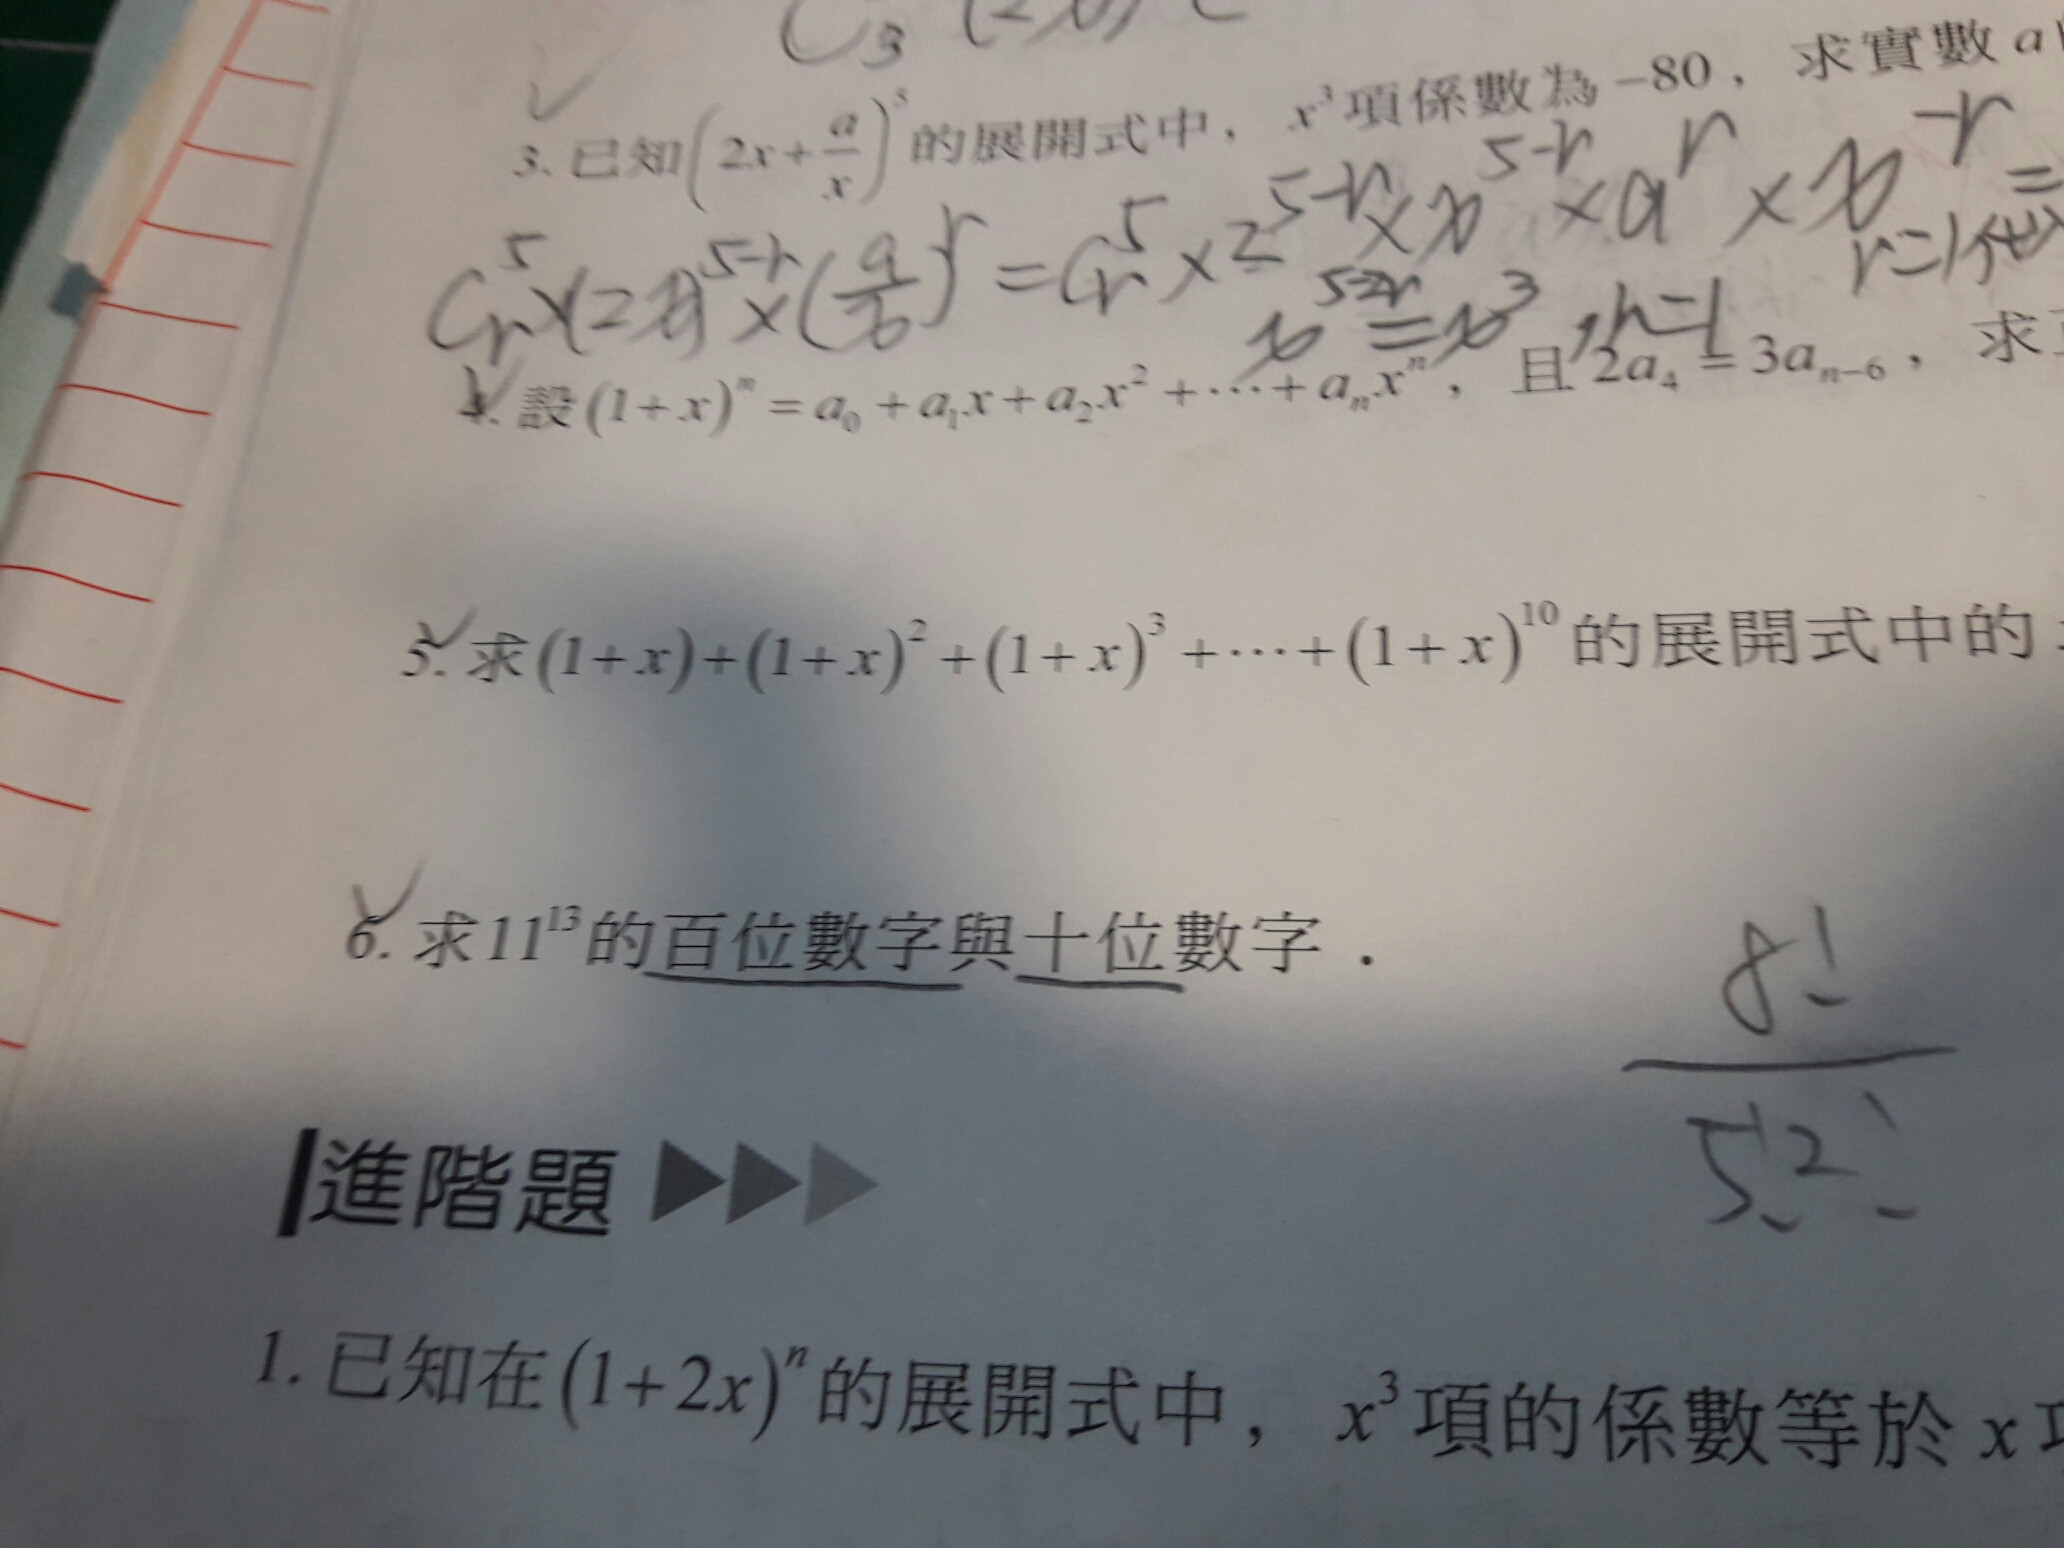 C₃ (2x)
3. 已知(2x+a/x)⁵的展開式中，x³項係數為−80，求實數a
C⁵ᵣ×(2x)⁵⁻ʳ×(a/x)ʳ=C⁵ᵣ×2⁵⁻ʳ×x⁵⁻ʳ×aʳ×x⁻ʳ=
x⁵⁻²ʳ=x³，r=1 r=1代入
4. 設(1+x)ⁿ=a₀+a₁x+a₂x²+⋯+aₙxⁿ，且2a₄=3aₙ₋₆，求
5. 求(1+x)+(1+x)²+(1+x)³+⋯+(1+x)¹⁰的展開式中的
6. 求11¹³的百位數字與十位數字．
8!
5!2!
進階題
1. 已知在(1+2x)ⁿ的展開式中，x³項的係數等於x項